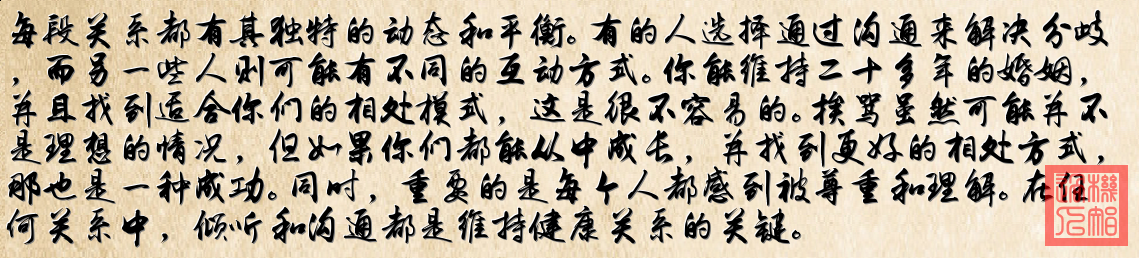 每段关系都有其独特的动态和平衡。有的人选择通过沟通来解决分歧
，而另一些人则可能有不同的互动方式。你能维持二十多年的婚姻，
并且找到适合你们的相处模式，这是很不容易的。挨骂虽然可能并不
是理想的情况，但如果你们都能从中成长，并找到更好的相处方式，
那也是一种成功。同时，重要的是每个人都感到被尊重和理解。在任
何关系中，倾听和沟通都是维持健康关系的关键。